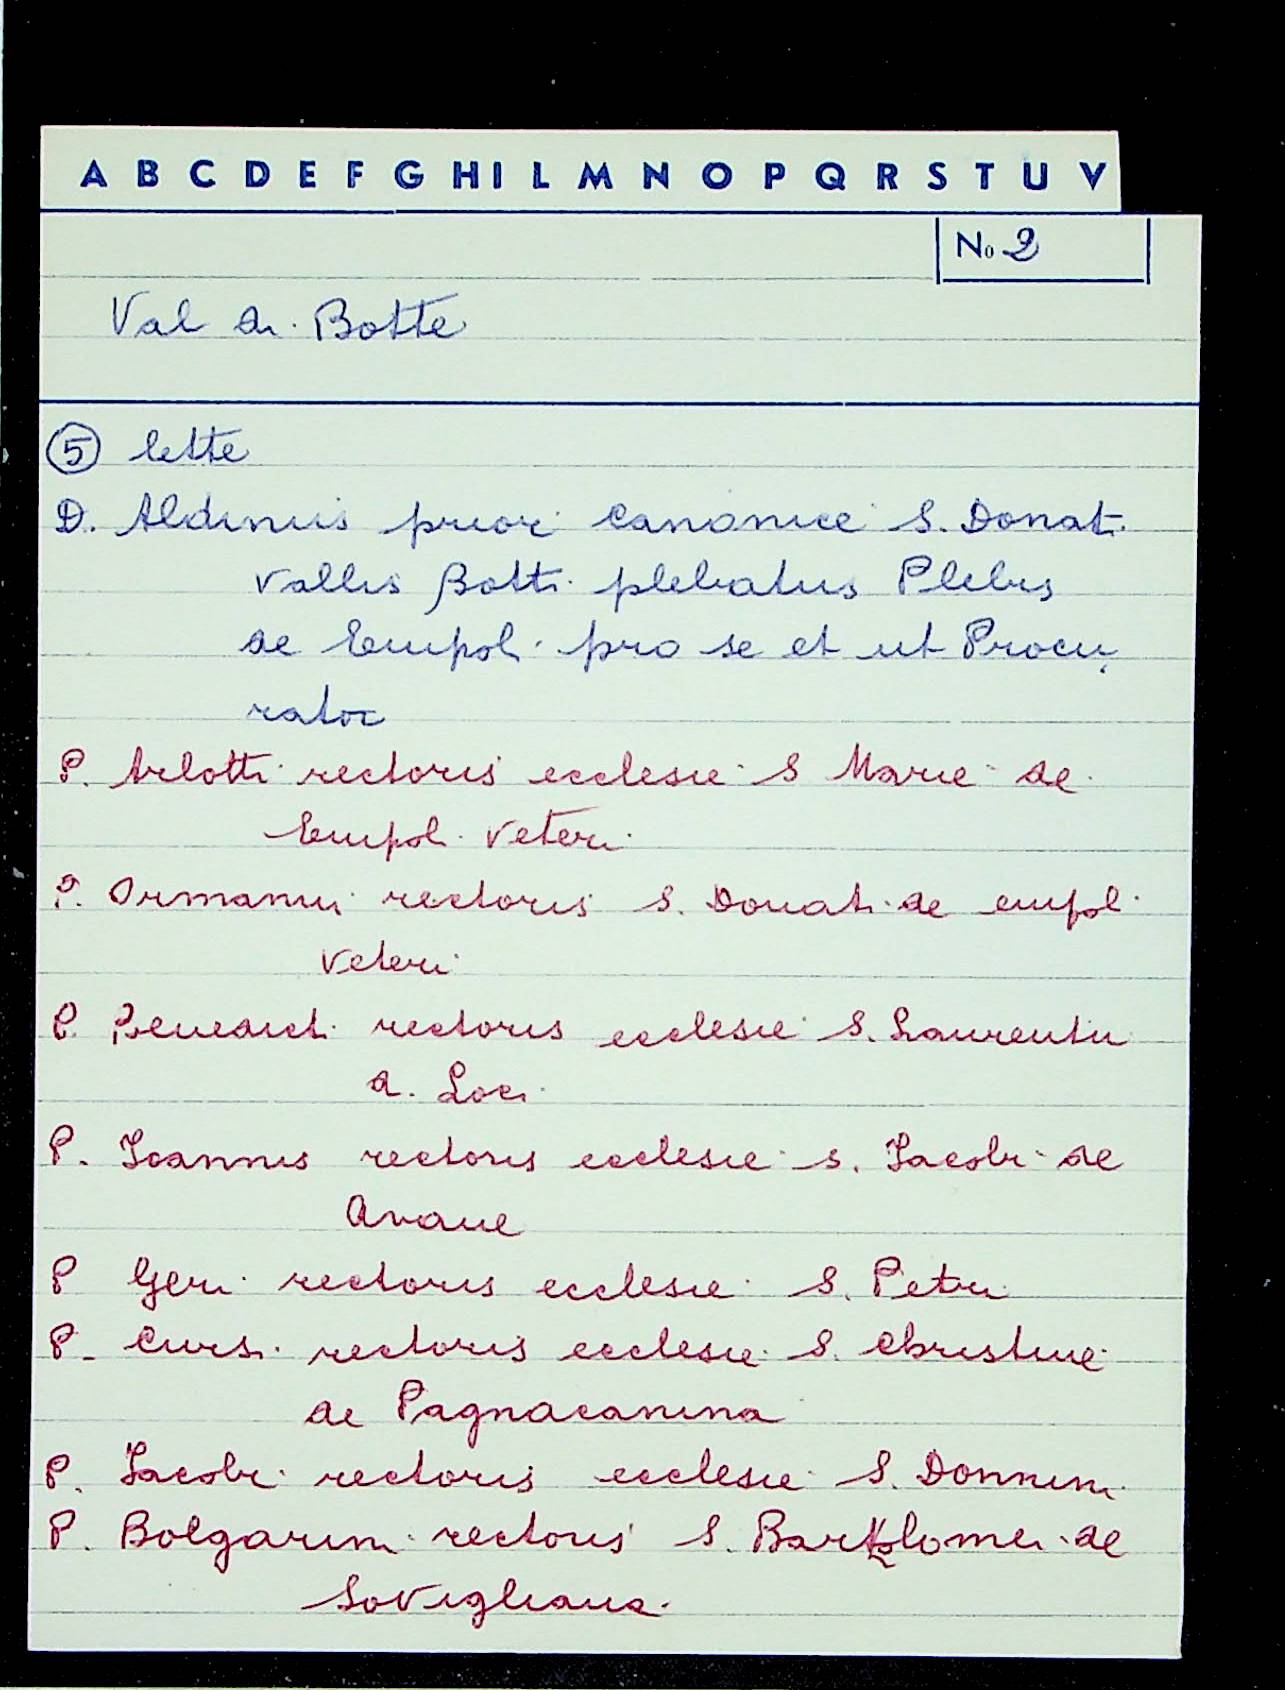 A B C D E F G H I L M N O P Q R S T U V
No 2
Val di Botte
5 lette
D. Aldinus prior canonice S. Donati
Vallis Botti plebatus Plebis
de Empoli pro se et ut Procu
rator
P. Arlotti rectoris ecclesie S Marie de
Empoli Veteri
P. Ormanni rectoris S. Donati de empoli
Veteri
P. Benedicti rectoris ecclesie S. Laurentii
a.
P. Ioannis rectoris ecclesie S. Iacobi de
Avane
P Geri rectoris ecclesie S. Petri
P. Cursi rectoris ecclesie S. Christine
de Pagnacanina
P. Iacobi rectoris ecclesie S. Donnini
P. Bolgarini rectoris S. Bartolomei de
Sovigliana.